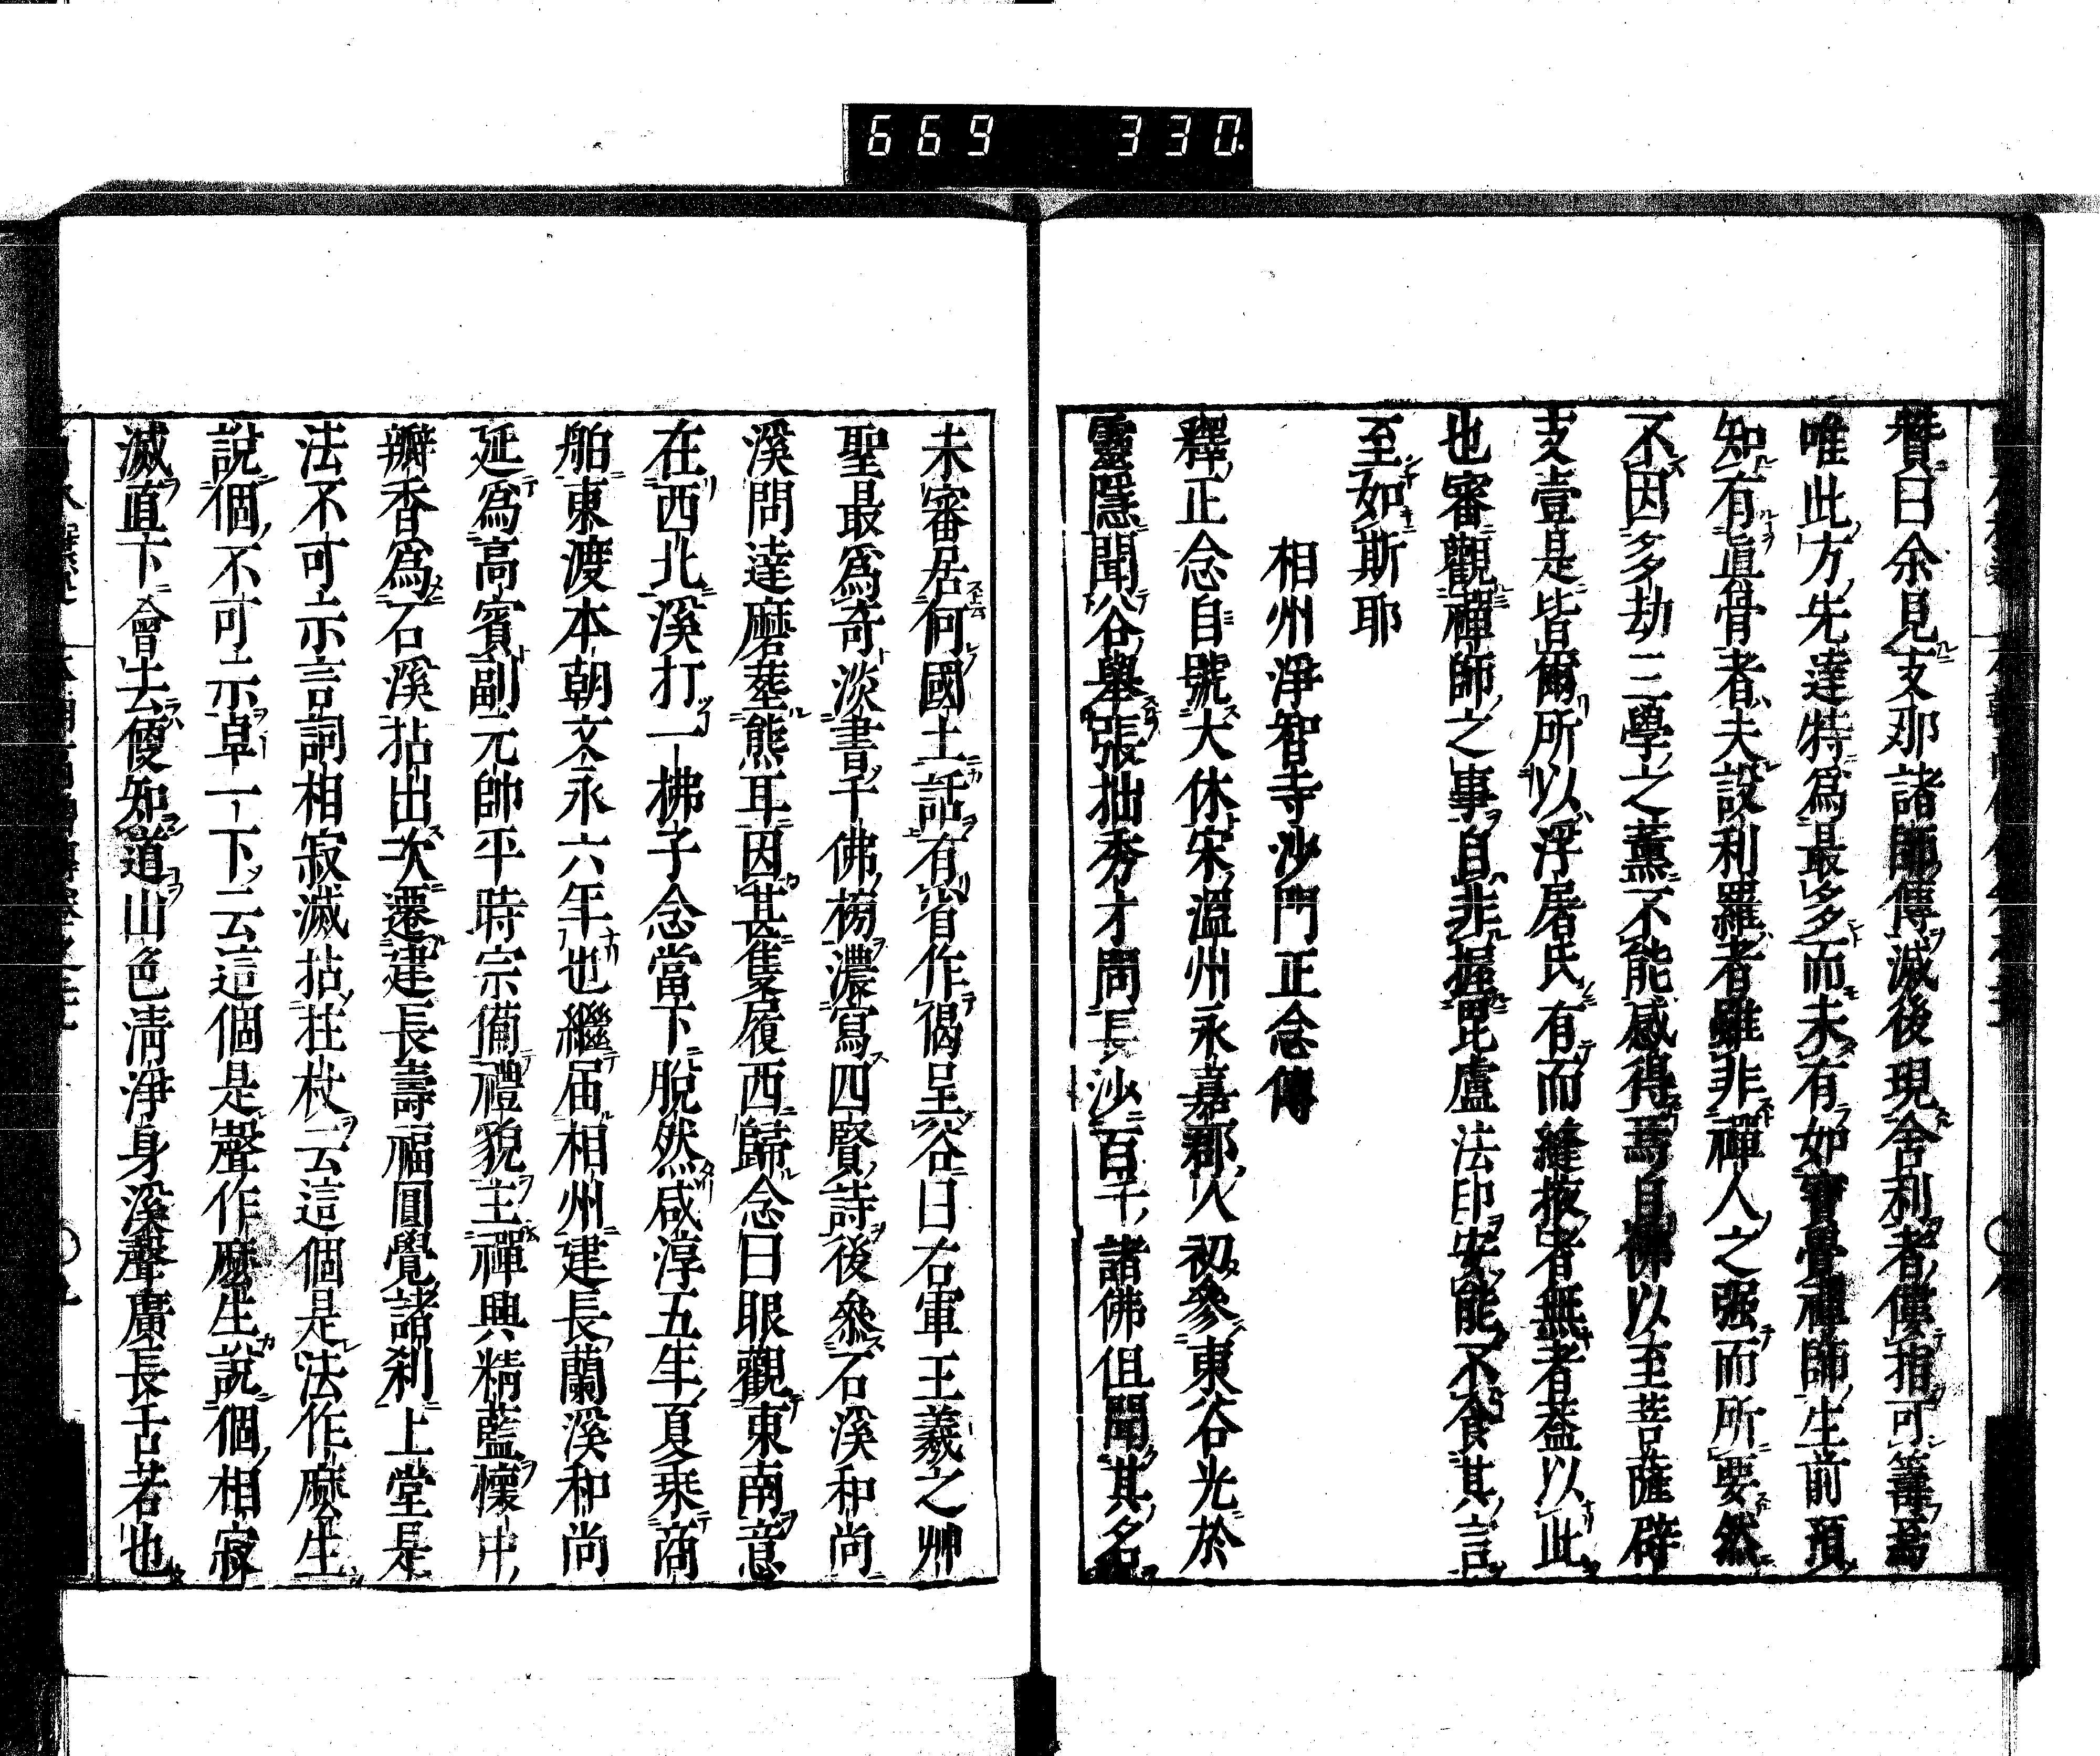 669 330
賛曰余見支那諸師傳滅後現舍利者僂指可籌焉
唯此方先達特爲最多而未有如寶覺禪師生前預
知有眞骨者夫設利羅者雖非禪人之强而所要然
不因多劫三學之薰不能感得焉自佛以至菩薩辟
支壹是皆爾所以浮屠氏有而縫掖者無者葢以此
也審觀禪師之事自非握毘盧法印安能不食其言
至如斯耶
相州淨智寺沙門正念傳
釋正念自號大休宋溫州永嘉郡人初參東谷光於
靈隱聞谷舉張拙秀才問長沙百千諸佛但聞其名
未審居何國土話有省作偈呈谷曰右軍王羲之艸
聖最爲奇淡書千佛榜濃寫四賢詩後叅石溪和尚
溪問達磨塟熊耳因甚隻履西歸念曰眼觀東南意
在西北溪打一拂子念當下脫然咸淳五年夏乘商
舶東渡本朝文永六年也繼届相州建長蘭溪和尚
延爲高賓副元帥平時宗備禮貌主禪興精藍懷中
瓣香爲石溪拈出次遷建長壽福圓覺諸刹上堂是
法不可示言詞相寂滅拈拄杖云這個是法作麽生
說個不可示卓一下云這個是聲作麽生說個相寂
滅直下會去便知道山色淸淨身溪聲廣長舌若也